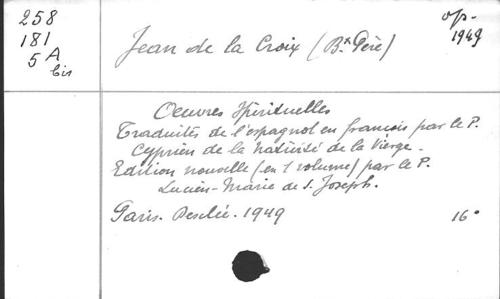 258
181
5 A
bis
op.
1949
Jean de la Croix (Bx Père)
Oeuvres Spirituelles
Traduites de l'espagnol en francois par le P.
Cyprien de la Nativité de la Vierge.
Edition nouvelle (en 1 volume) par le P.
Lucien-Marie de S. Joseph.
Paris. Desclée. 1949
16°